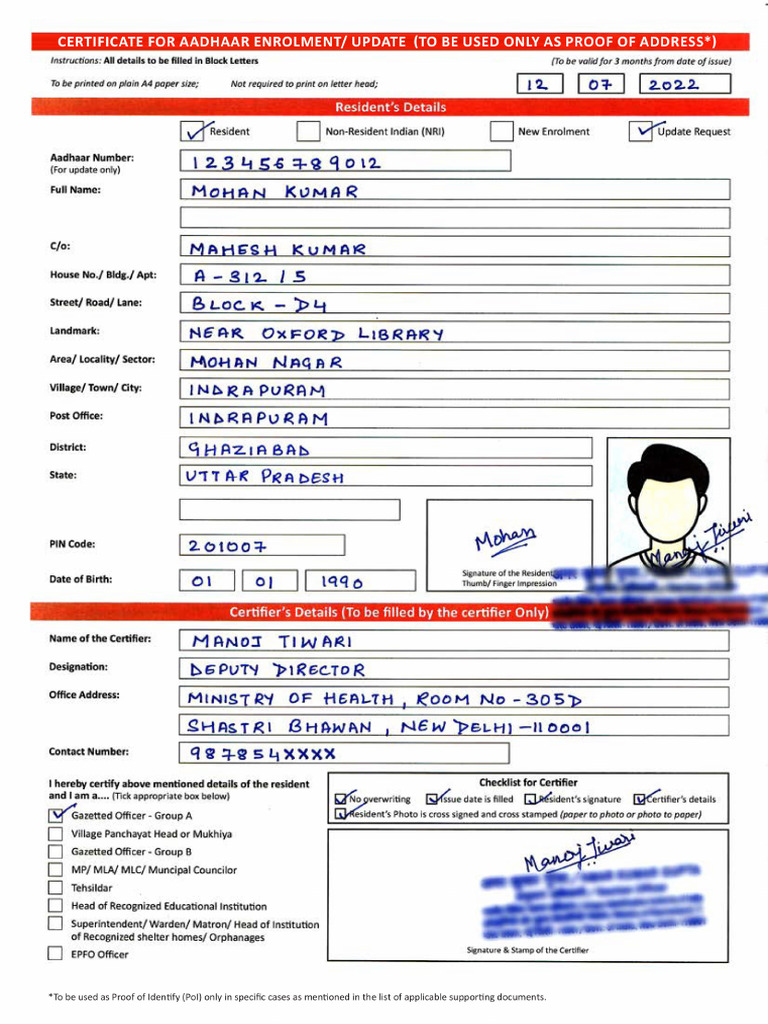 CERTIFICATE FOR AADHAAR ENROLMENT/ UPDATE (TO BE USED ONLY AS PROOF OF ADDRESS*)
Instructions: All details to be filled in Block Letters (To be valid for 3 months from date of issue)
To be printed on plain A4 paper size; Not required to print on letter head; 12 07 2022
Resident's Details
Resident Non-Resident Indian (NRI) New Enrolment Update Request
Aadhaar Number: 123456789012
(For update only)
Full Name: MOHAN KUMAR
C/o: MAHESH KUMAR
House No./ Bldg./ Apt: A-312/5
Street/ Road/ Lane: BLOCK-D4
Landmark: NEAR OXFORD LIBRARY
Area/ Locality/ Sector: MOHAN NAGAR
Village/ Town/ City: INDRAPURAM
Post Office: INDRAPURAM
District: GHAZIABAD
State: UTTAR PRADESH
Mohan
Manoj Tiwari
PIN Code: 201007
Signature of the Resident
Thumb/ Finger Impression
Date of Birth: 01 01 1990
Certifier's Details (To be filled by the certifier Only)
Name of the Certifier: MANOJ TIWARI
Designation: DEPUTY DIRECTOR
Office Address: MINISTRY OF HEALTH, ROOM NO-305D
SHASTRI BHAWAN, NEW DELHI-110001
Contact Number: 987854XXXX
I hereby certify above mentioned details of the resident
and I am a.... (Tick appropriate box below)
Gazetted Officer - Group A
Village Panchayat Head or Mukhiya
Gazetted Officer - Group B
MP/ MLA/ MLC/ Muncipal Councilor
Tehsildar
Head of Recognized Educational Institution
Superintendent/ Warden/ Matron/ Head of Institution
of Recognized shelter homes/ Orphanages
EPFO Officer
Checklist for Certifier
No overwriting Issue date is filled Resident's signature Certifier's details
Resident's Photo is cross signed and cross stamped (paper to photo or photo to paper)
Manoj Tiwari
Signature & Stamp of the Certifier
*To be used as Proof of Identify (PoI) only in specific cases as mentioned in the list of applicable supporting documents.